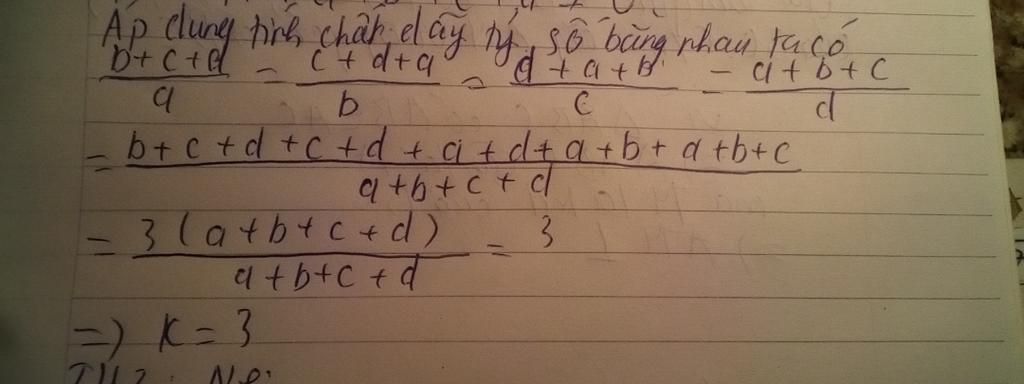 Áp dụng tính chất dãy tỷ số bằng nhau ta có
b+c+d/a = c+d+a/b = d+a+b/c = a+b+c/d
= b+c+d+c+d+a+d+a+b+a+b+c/a+b+c+d
= 3(a+b+c+d)/a+b+c+d = 3
=> K=3